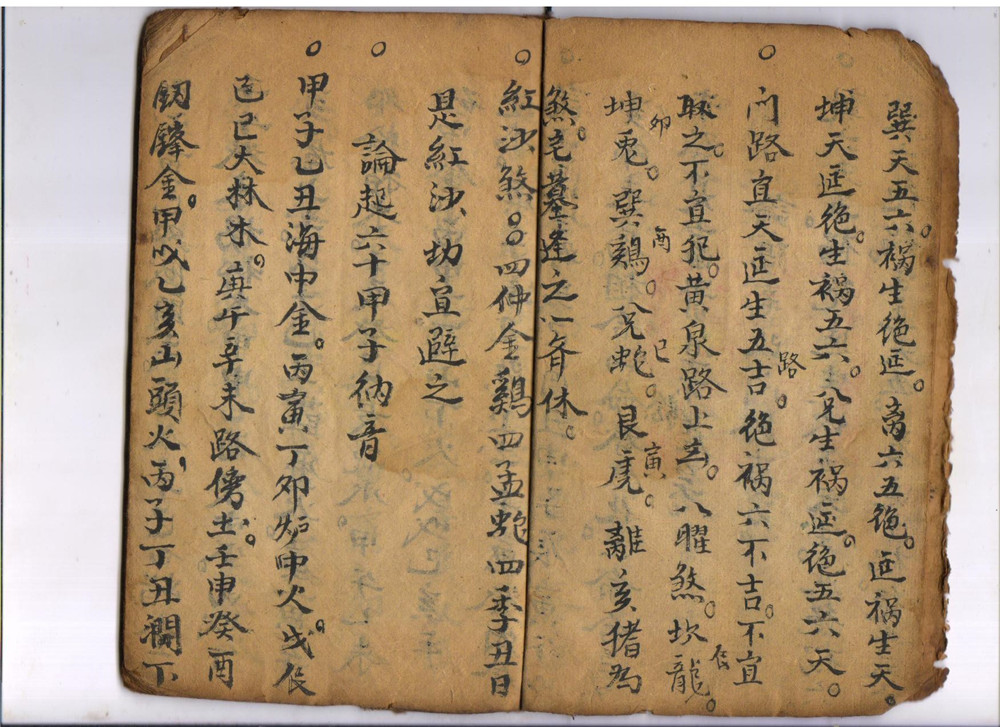 巽天五六。祸生絶延。离六五絶。延祸生天。
坤天延絶。生祸五六。兑生祸。延絶五六天。
门路宜天延生五吉。路絶祸六不吉。不宜
联之。不宜犯。黄泉路上去。八曜煞。坎龍辰。
坤兎卯。巽鷄酉。兑蛇巳。艮虎寅。離亥猪為
煞。宅墓逢之一斉休。
○紅沙煞。○四仲金鷄四孟蛇四季丑日
是紅沙切宜避之
○論起六十甲子納音
○甲子乙丑海中金。丙寅丁卯炉中火。戊辰
己巳大林木。庚午辛未路傍土。壬申癸酉
釼鋒金。甲戌乙亥山頭火。丙子丁丑澗下